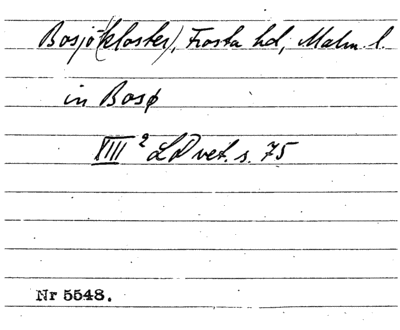 Bosjö(kloster), Frosta hd, Malm. l.
in Bosø
XIII 2 LD vet. s. 75
Nr 5548.